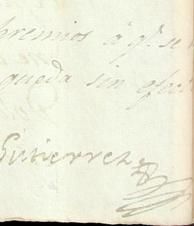 premios a qe. se
queda sin efec
Gutierrez